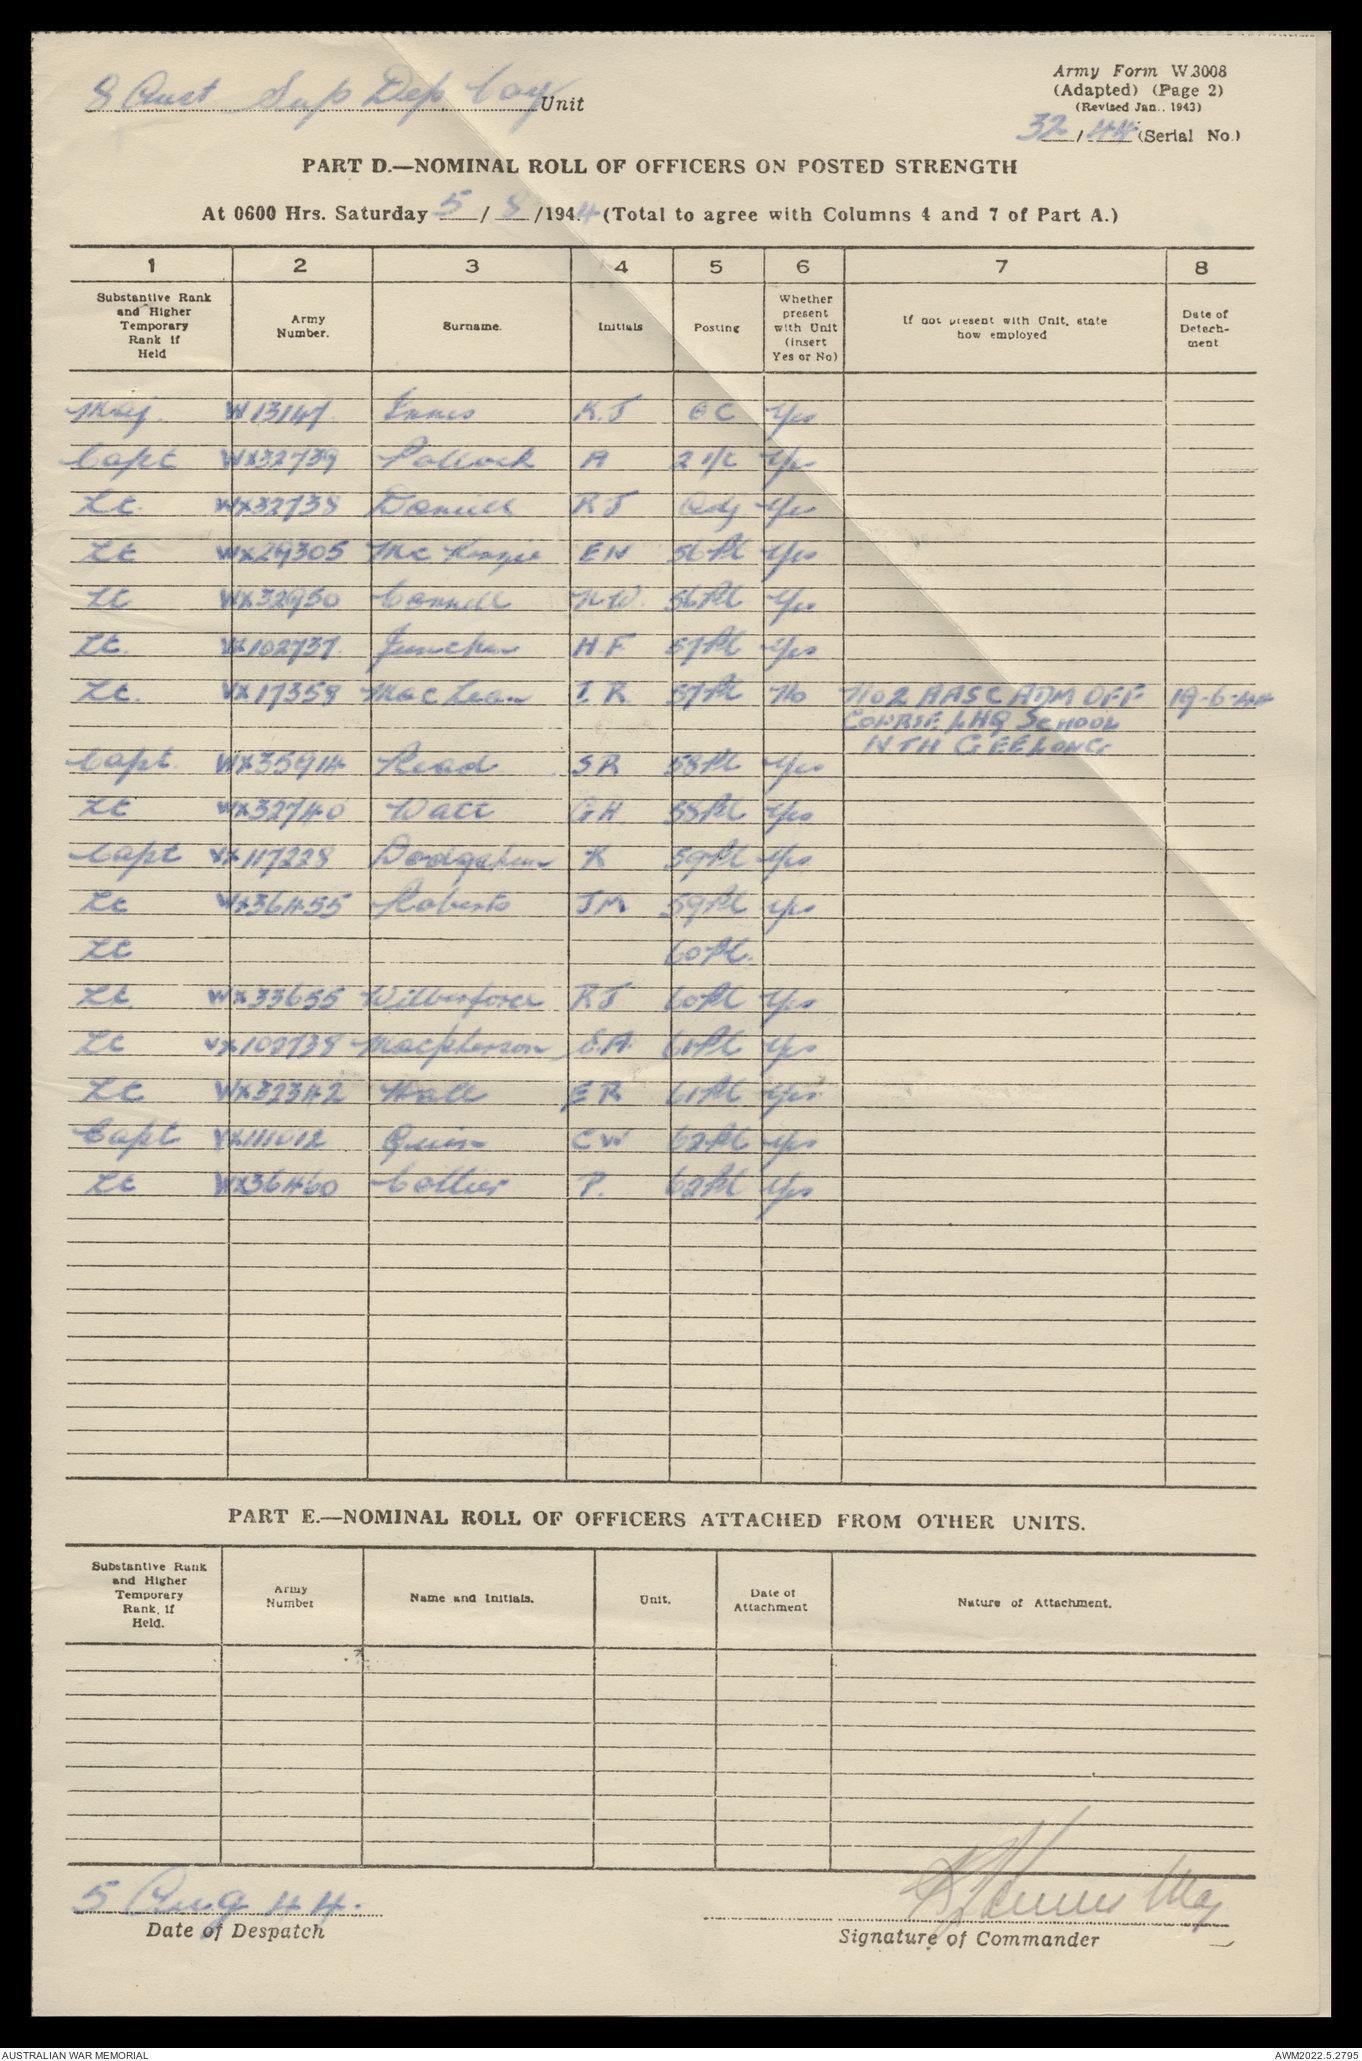 8 Aust Sup Dep Coy Unit
Army Form W.3008
(Adapted) (Page 2)
(Revised Jan.. 1943)
32/44 (Serial No.)
PART D.—NOMINAL ROLL OF OFFICERS ON POSTED STRENGTH
At 0600 Hrs. Saturday 5/8/1944 (Total to agree with Columns 4 and 7 of Part A.)
1 2 3 4 5 6 7 8
Substantive Rank and Higher Temporary Rank if Held
Army Number.
Surname.
Initials
Posting
Whether present with Unit (insert Yes or No)
If not present with Unit, state how employed
Date of Detach-ment
Maj. W13147 Innes K.J OC Yes
Capt WX32739 Pollock A 2 i/c Yes
Lt. WX32738 Daniell RJ Adj Yes
Lt WX29305 McKenzie EN 56 Pl Yes
Lt WX32950 Connell 56 Pl Yes
Lt. VX102737 H.F 57 Pl Yes
Lt. VX17359 MacLean I.R. 57 Pl No No 2 AASC ADM OFF 19-6-44
COURSE LHQ SCHOOL
NTH GEELONG
Capt. WX35914 Read SR 58 Pl Yes
Lt WX32740 Watt GH 58 Pl Yes
Capt VX117228 Dodgshun K 59 Pl Yes
Lt WX36455 Roberts JM 59 Pl Yes
Lt 60 Pl.
Lt. WX33655 Wilberforce RJ 60 Pl Yes
Lt Macpherson E.A. 61 Pl Yes
Lt WX32342 Hall ER 61 Pl Yes
Capt VX111012 Quinn CW 62 Pl Yes
Lt WX36460 Collier P. 62 Pl Yes
PART E.—NOMINAL ROLL OF OFFICERS ATTACHED FROM OTHER UNITS.
Substantive Rank and Higher Temporary Rank, if Held.
Army Number
Name and Initials.
Unit.
Date of Attachment
Nature of Attachment.
5 Aug 44.
Date of Despatch
KJ Innes Maj
Signature of Commander
AUSTRALIAN WAR MEMORIAL
AWM2022.5.2795